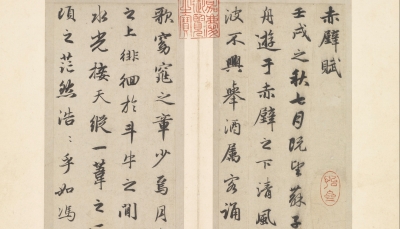 赤壁賦
壬戌之秋七月既望蘇子
舟遊于赤壁之下清風
波不興舉酒屬客誦
歌窈窕之章少焉月
之上徘徊於斗牛之間
水光接天縱一葦之
頃之茫然浩〻乎如馮